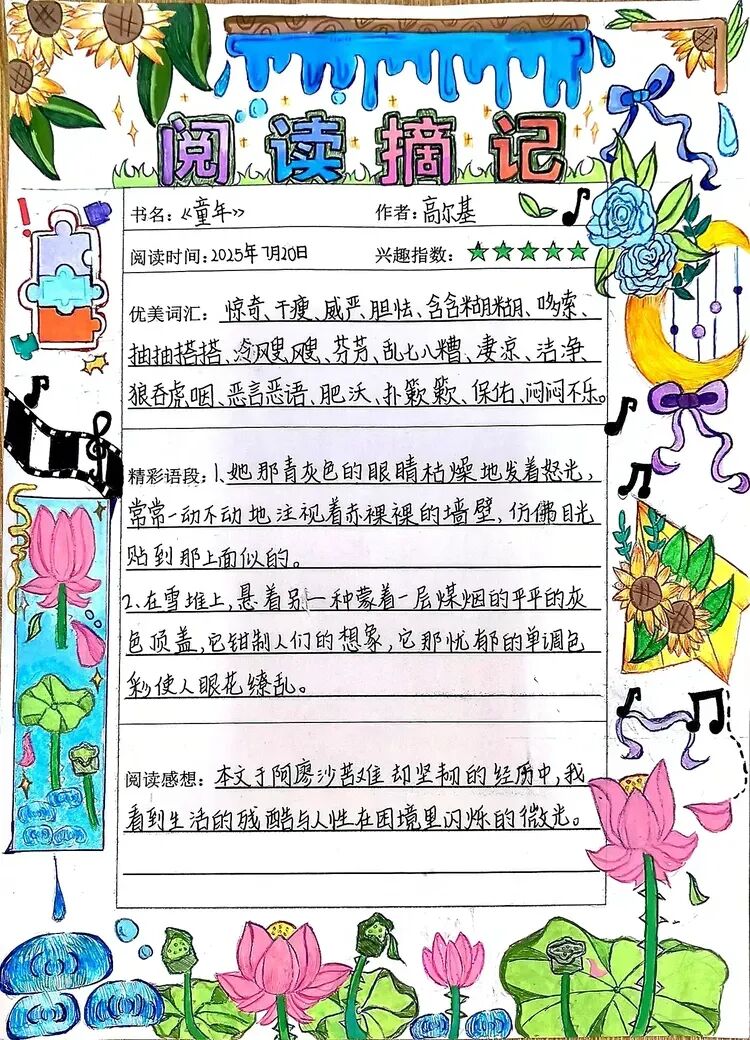 阅读摘记
书名：《童年》 作者：高尔基
阅读时间：2025年7月20日 兴趣指数：★★★★★
优美词汇：惊奇、干瘦、威严、胆怯、含含糊糊、哆索、
抽抽搭搭、冷飕飕、芬芳、乱七八糟、凄凉、洁净、
狼吞虎咽、恶言恶语、肥沃、扑簌簌、保佑、闷闷不乐。
精彩语段：1、她那青灰色的眼睛枯燥地发着怒光，
常常一动不动地注视着赤裸裸的墙壁，仿佛目光
贴到那上面似的。
2、在雪堆上，悬着另一种蒙着一层煤烟的平平的灰
色顶盖，它钳制人们的想象，它那忧郁的单调色
彩使人眼花缭乱。
阅读感想：本文于阿廖沙苦难却坚韧的经历中，我
看到生活的残酷与人性在困境里闪烁的微光。